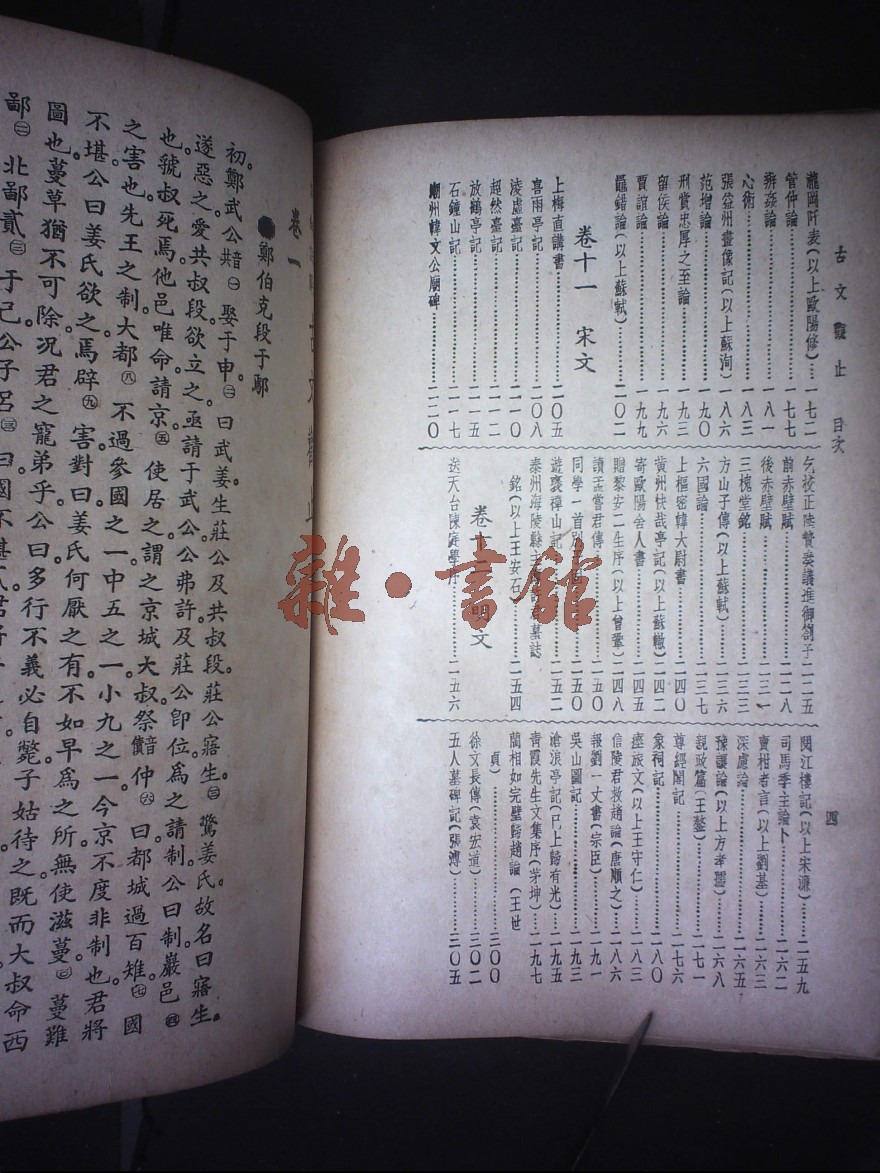 古文觀止 目次
四
瀧岡阡表(以上歐陽修)…一七二
管仲論…一七七
辨姦論…一八一
心術…一八三
張益州畫像記(以上蘇洵)…一八六
范增論…一九〇
刑賞忠厚之至論…一九三
留侯論…一九六
賈誼論…一九九
鼂錯論(以上蘇軾)…二〇二
卷十一 宋文
上梅直講書…二〇五
喜雨亭記…二〇八
淩虛臺記…二一〇
超然臺記…二一二
放鶴亭記…二一五
石鐘山記…二一七
潮州韓文公廟碑…二二〇
乞校正陸贄奏議進御劄子…二二五
前赤壁賦…二二八
後赤壁賦…二三一
三槐堂銘…二三三
方山子傳(以上蘇軾)…二三六
六國論…二三七
上樞密韓太尉書…二四〇
黃州快哉亭記(以上蘇轍)…二四二
寄歐陽舍人書…二四五
贈黎安二生序(以上曾鞏)…二四八
讀孟嘗君傳…二五〇
同學一首別…二五〇
遊褒禪山記…二五二
泰州海陵縣主…墓誌
銘(以上王安石)…二五四
卷十二 明文
送天台陳庭學序…二五六
閱江樓記(以上宋濂)…二五九
司馬季主論卜…二六二
賣柑者言(以上劉基)…二六三
深慮論…二六五
豫讓論(以上方孝孺)…二六八
親政篇(王鏊)…二七一
尊經閣記…二七六
象祠記…二八〇
瘞旅文(以上王守仁)…二八三
信陵君救趙論(唐順之)…二八六
報劉一丈書(宗臣)…二九一
吳山圖記…二九三
滄浪亭記(已上歸有光)…二九五
青霞先生文集序(茅坤)…二九七
藺相如完璧歸趙論(王世
貞)…三〇〇
徐文長傳(袁宏道)…三〇二
五人墓碑記(張溥)…三〇五
卷一
鄭伯克段于鄢
初。鄭武公㊀娶于申。㊁曰武姜生莊公及共叔段。莊公寤生。㊂驚姜氏。故名曰寤生。
遂惡之。愛共叔段。欲立之。亟請于武公。公弗許。及莊公卽位。爲之請制。公曰。制巖邑㊃
也。虢叔死焉。他邑唯命。請京。㊄使居之。謂之京城大叔。祭仲㊅曰。都城過百雉。㊆國
之害也。先王之制。大都㊇不過參國之一。中五之一。小九之一。今京不度。非制也。君將
不堪。公曰。姜氏欲之。焉辟㊈害。對曰。姜氏何厭之有。不如早爲之所。無使滋蔓。蔓難
圖也。蔓草猶不可除。况君之寵弟乎。公曰。多行不義必自斃。子姑待之。既而大叔命西
鄙北鄙貳于己。公子呂曰。國不堪貳。君
雜·書館